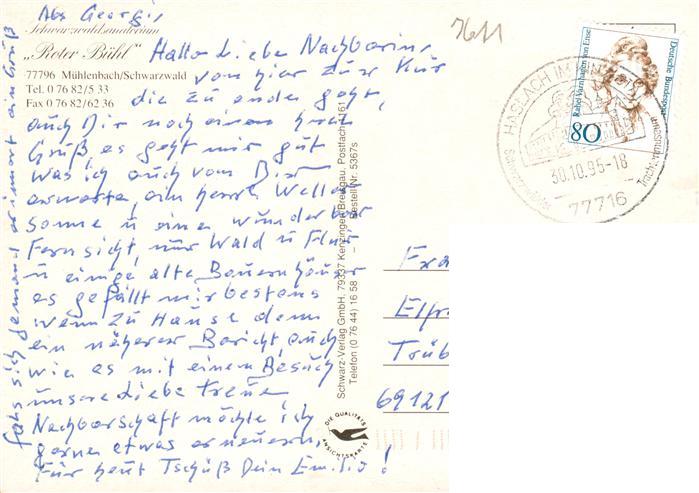 Abs Georgi,
Schwarzwaldsanatorium
„Roter Bühl"
77796 Mühlenbach/Schwarzwald
Tel. 0 76 82/5 33
Fax 0 76 82/62 36
Hallo Liebe Nachbarin,
von hier zur Kur
die zu ende geht,
auch Dir noch einen
Gruß es geht mir gut
was ich auch von Dir
erwarte, ein herrl Wetter
sonne u eine wunderbar
Fernsicht, nur Wald u
u einige alte Bauernhäuser
es gefällt mir bestens
wenn zu Hause dann
ein näherer Bericht, auch
wie es mit einem Besuch
unsere Liebe treue
Nachbarschaft möchte ich
gerne etwas erneuern,
Für heut Tschüß Dein
falls sich jemand erinnert ein Gruß
Schwarz-Verlag GmbH, 79337 Kenzingen/Breisgau, Postfach 1161
Telefon (0 76 44) 16 58 – Bestell Nr. 5367s
DIE QUALITÄTS
ANSICHTSKARTE
Deutsche Bundespost
Rahel Varnhagen von Ense
80
HASLACH IM
Schwarzwälder
Trachtenmuseum
30.10.95-18
77716
Fra
Elfr
Trüb
69121